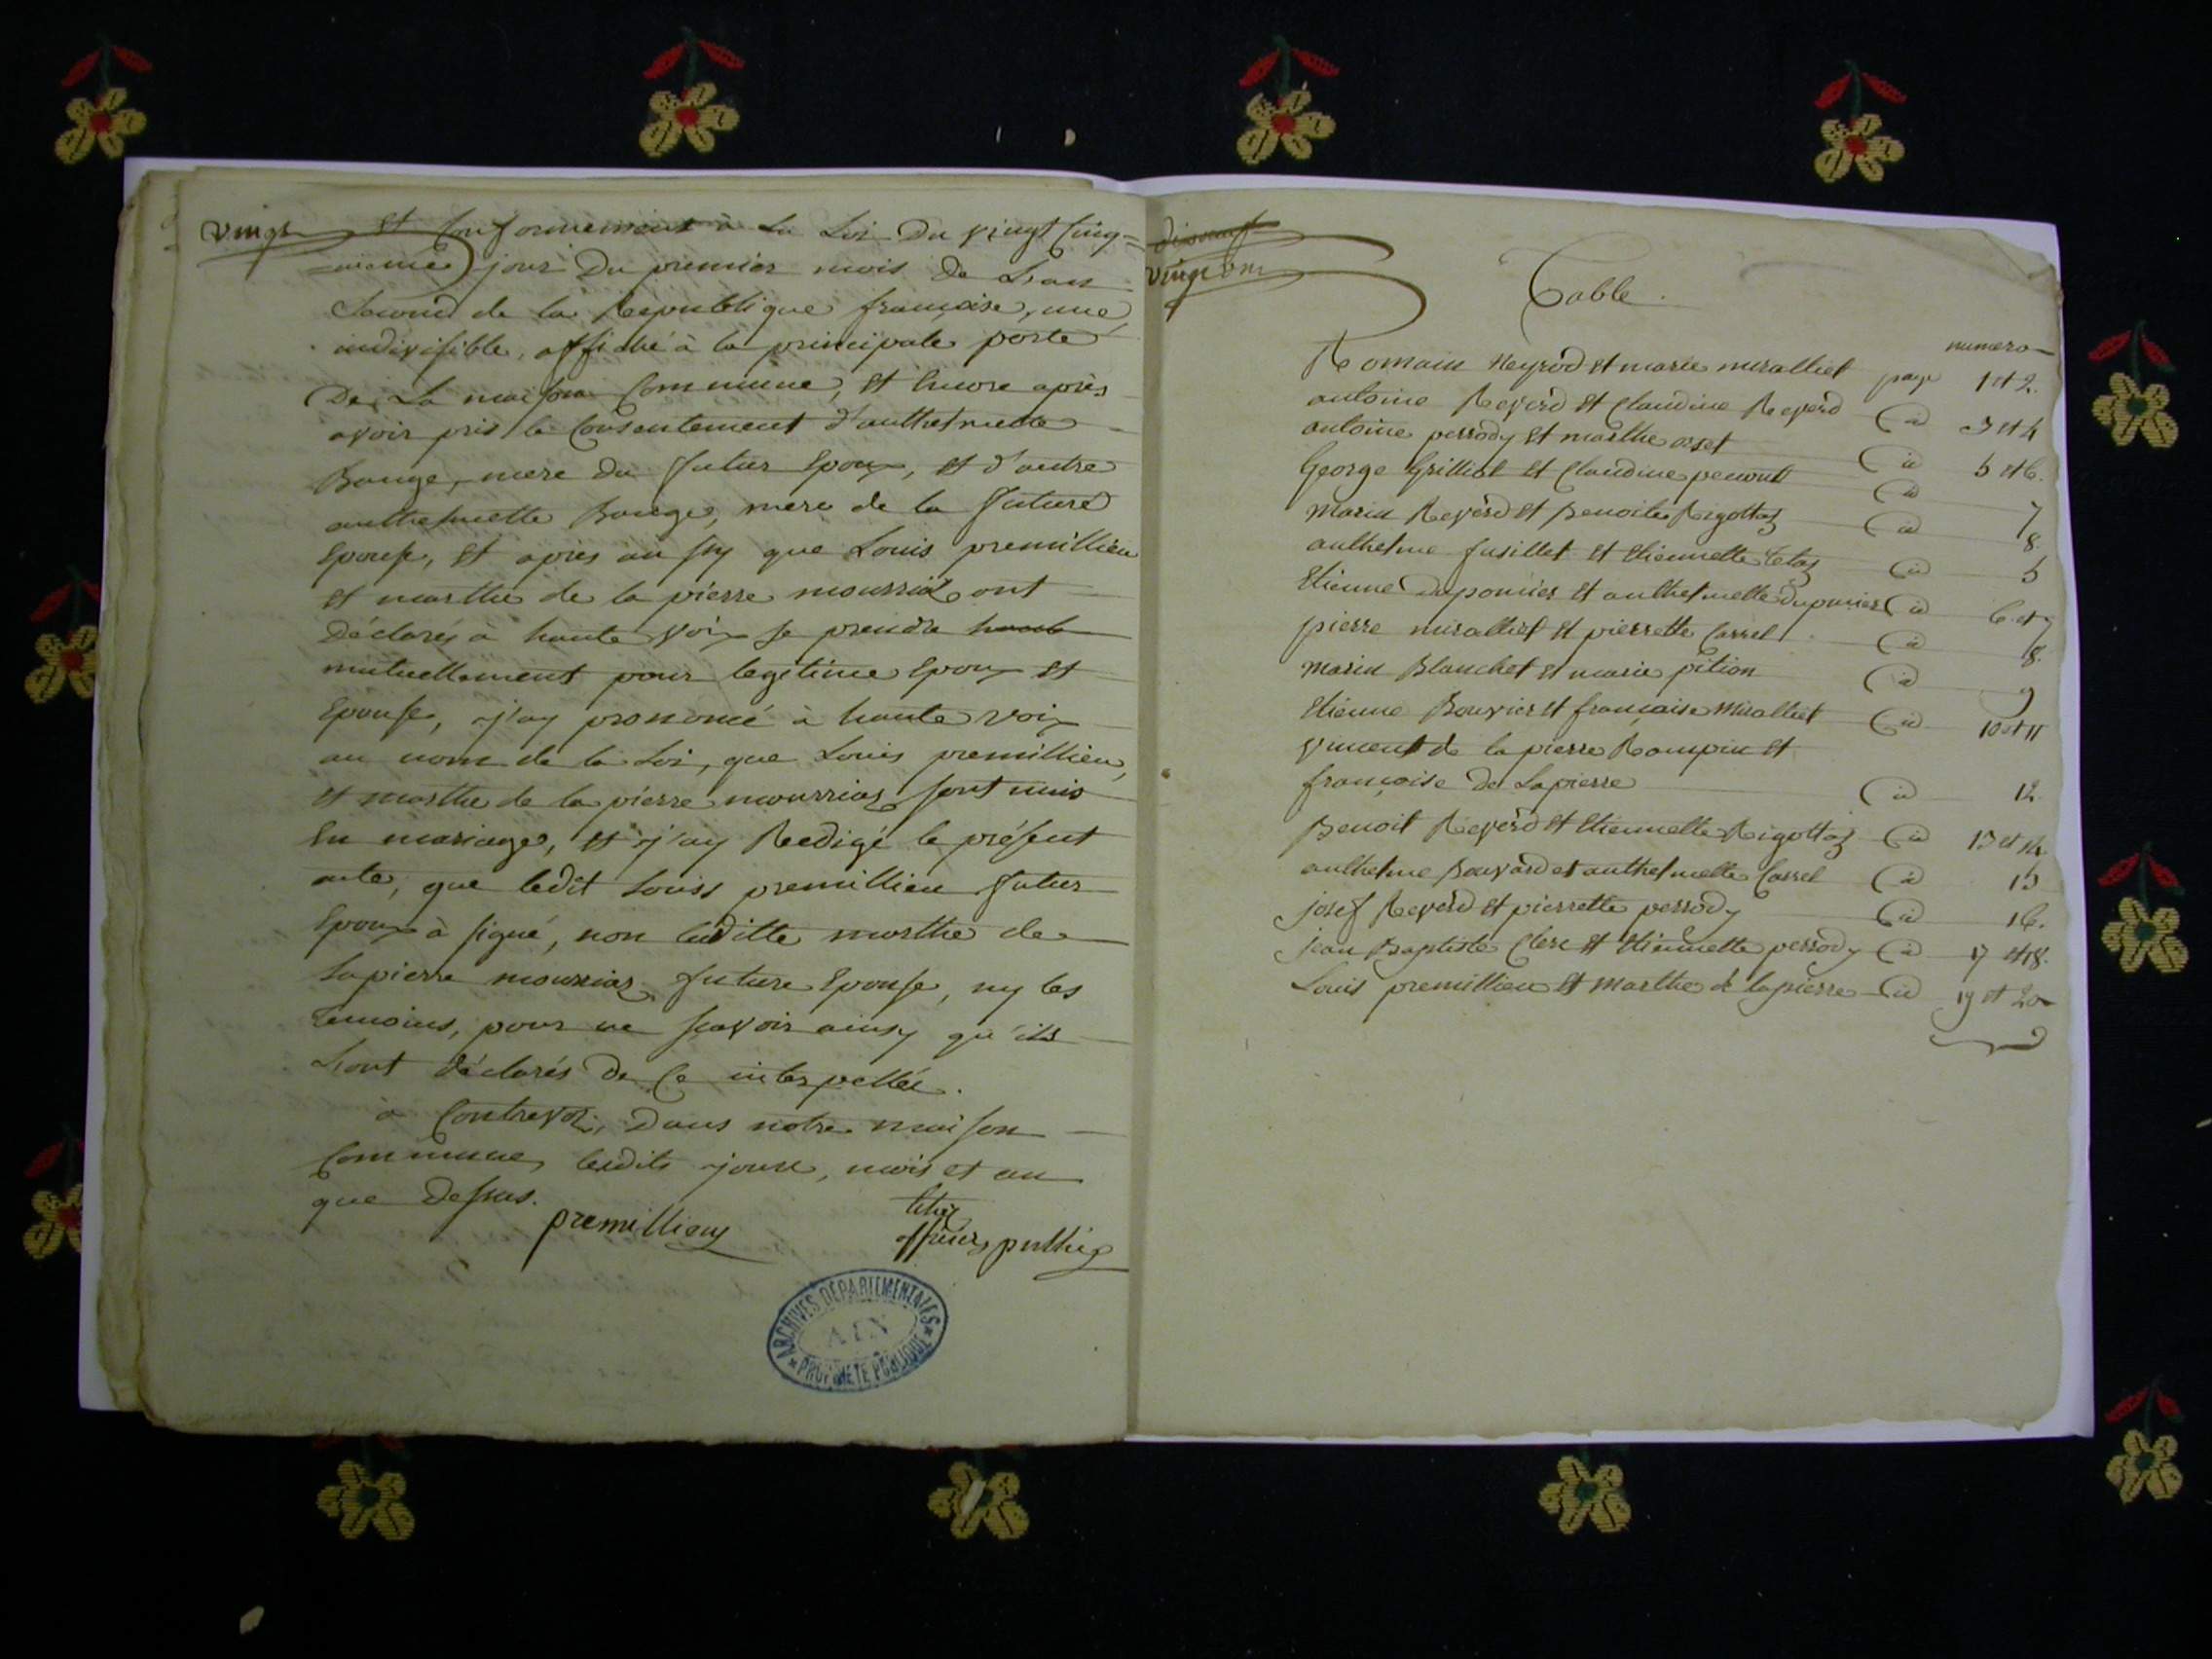 vingt
et Conformement à La Loi Du vingt Cinq=
=uieme jour Du premier mois De L'an
Second de la Republique françoise, une
indivisible, affiché à la principale porte
De La maison Commune, et Encore après
avoir pris le Consentement d'anthelmette
Bouge, mere du futur Epoux, et d'autre
anthelmette Bouge, mere de la future
Epouse, et après aussy que Louis premillieu
et marthe de la pierre mourriaz ont
Déclarés à haute voix se prendre haute
mutuellement pour legitime Epoux et
Epouse, j'ay prononcé à haute voix
au nom de la Loi, que Louis premillieu,
et marthe de la pierre mourriaz sont unis
En mariage, et j'ay Redigé le présent
acte, que ledit Louis premillieu futur
Epoux à signé, non laditte marthe de
Lapierre mourriaz future Epouse, ny les
temoins, pour ne sçavoir ainsy qu'ils
L'ont déclarés De Ce interpellée.
à Contrevoz, Dans notre maison
Commune, lesdits jour, mois et an
que Dessus.
premillieu
officier public
ARCHIVES DÉPARTEMENTALES
AIN
PROPRIÉTÉ PUBLIQUE
vingt un
Table.
numero
Romain Reyrod et marie miralliet page 1 et 2.
antoine Reverd et Claudine Reverd id 3 et 4
antoine perrody et marthe orset id 5 et 6.
George Grilliet et Claudine penout id 7
marin Reverd et Benoite Rigottaz id 8.
anthelme fusillet et Etiennette Tetaz id 5
Etienne Duponier et anthelmette Duponier id 6 et 7
pierre miralliet et pierrette Carrel id 8.
marin Blanchet et marie pition id 9
Etienne Bouvier et françoise Miralliet id 10 et 11
vincent de la pierre Rampin et
françoise de Lapierre id 12
Benoit Reverd et Etiennette Rigottaz id 13 et 14.
anthelme Bouvard et anthelmette Carrel id 15
josef Reverd et pierrette perrody id 16.
jean Baptiste Clerc et Etiennette perrody id 17 et 18.
Louis premillieu et Marthe de lapierre id 19 et 20